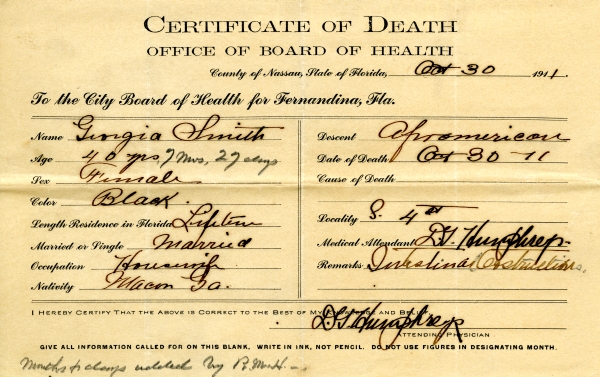 CERTIFICATE OF DEATH
OFFICE OF BOARD OF HEALTH
County of Nassau, State of Florida, Oct 30 1911.
To the City Board of Health for Fernandina, Fla.
Name Georgia Smith
Age 40 yrs, 7 Mos, 27 days
Sex Female
Color Black.
Length Residence in Florida Lifetim
Married or Single Married
Occupation Housewife
Nativity Macon Ga.
Descent Afroamerican
Date of Death Oct 30 - 11
Cause of Death
Locality S. 4th
Medical Attendant D.G. Humphreys
Remarks Intestinal Obstructions.
I HEREBY CERTIFY THAT THE ABOVE IS CORRECT TO THE BEST OF MY KNOWLEDGE AND BELIEF.
D.G. Humphreys
ATTENDING PHYSICIAN
GIVE ALL INFORMATION CALLED FOR ON THIS BLANK, WRITE IN INK, NOT PENCIL. DO NOT USE FIGURES IN DESIGNATING MONTH.
Months & days added by